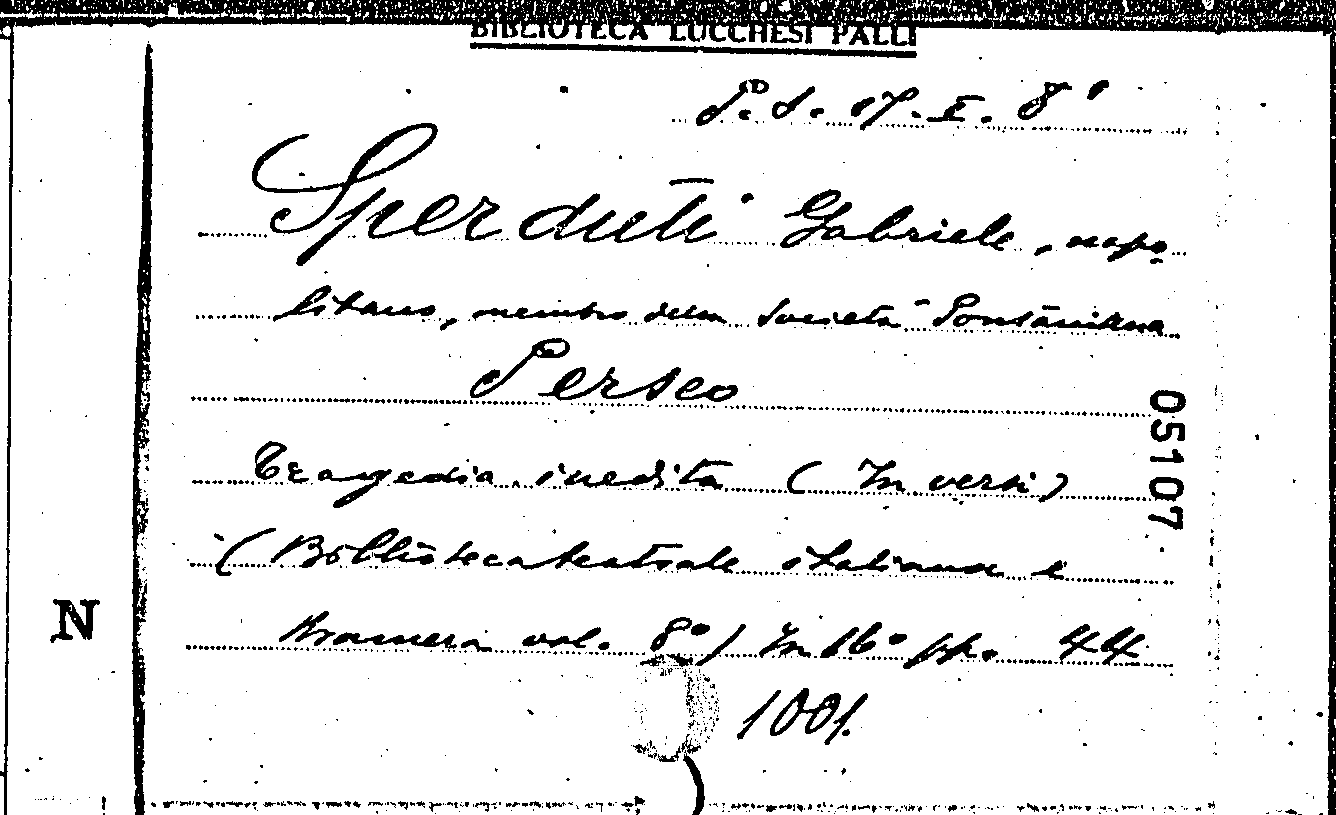 BIBLIOTECA LUCCHESI PALLI
P. S. 17. I. 8°
Sperduti Gabriele, napo-
litano, membro della Società Pontaniana
Perseo
Tragedia inedita (In versi)
05107
(Biblioteca teatrale italiana e
straniera vol. 8°) In 16° pp. 44
N
1001.